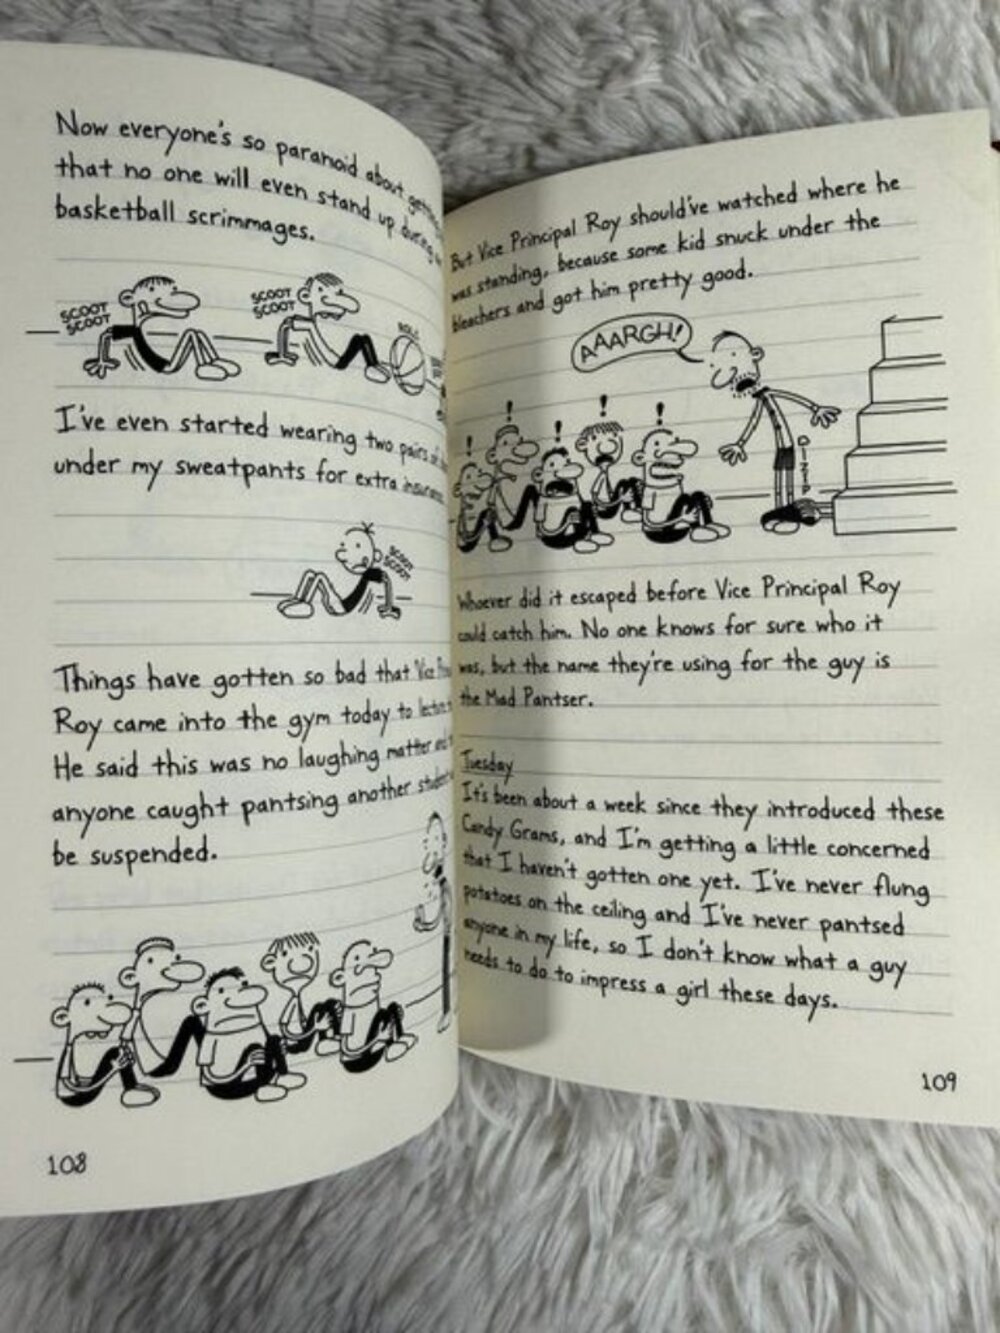 Now everyone's so paranoid about getting
that no one will even stand up during
basketball scrimmages.
SCOOT
SCOOT
SCOOT
SCOOT
ROLL
I've even started wearing two pairs of
under my sweatpants for extra insurance.
SCOOT
SCOOT
Things have gotten so bad that Vice
Roy came into the gym today to lecture
He said this was no laughing matter and
anyone caught pantsing another student
be suspended.
108
But Vice Principal Roy should've watched where he
was standing, because some kid snuck under the
bleachers and got him pretty good.
AAARGH!
! ! ! !
ZIP
Whoever did it escaped before Vice Principal Roy
could catch him. No one knows for sure who it
was, but the name they're using for the guy is
the Mad Pantser.
Tuesday
It's been about a week since they introduced these
Candy Grams, and I'm getting a little concerned
that I haven't gotten one yet. I've never flung
potatoes on the ceiling and I've never pantsed
anyone in my life, so I don't know what a guy
needs to do to impress a girl these days.
109